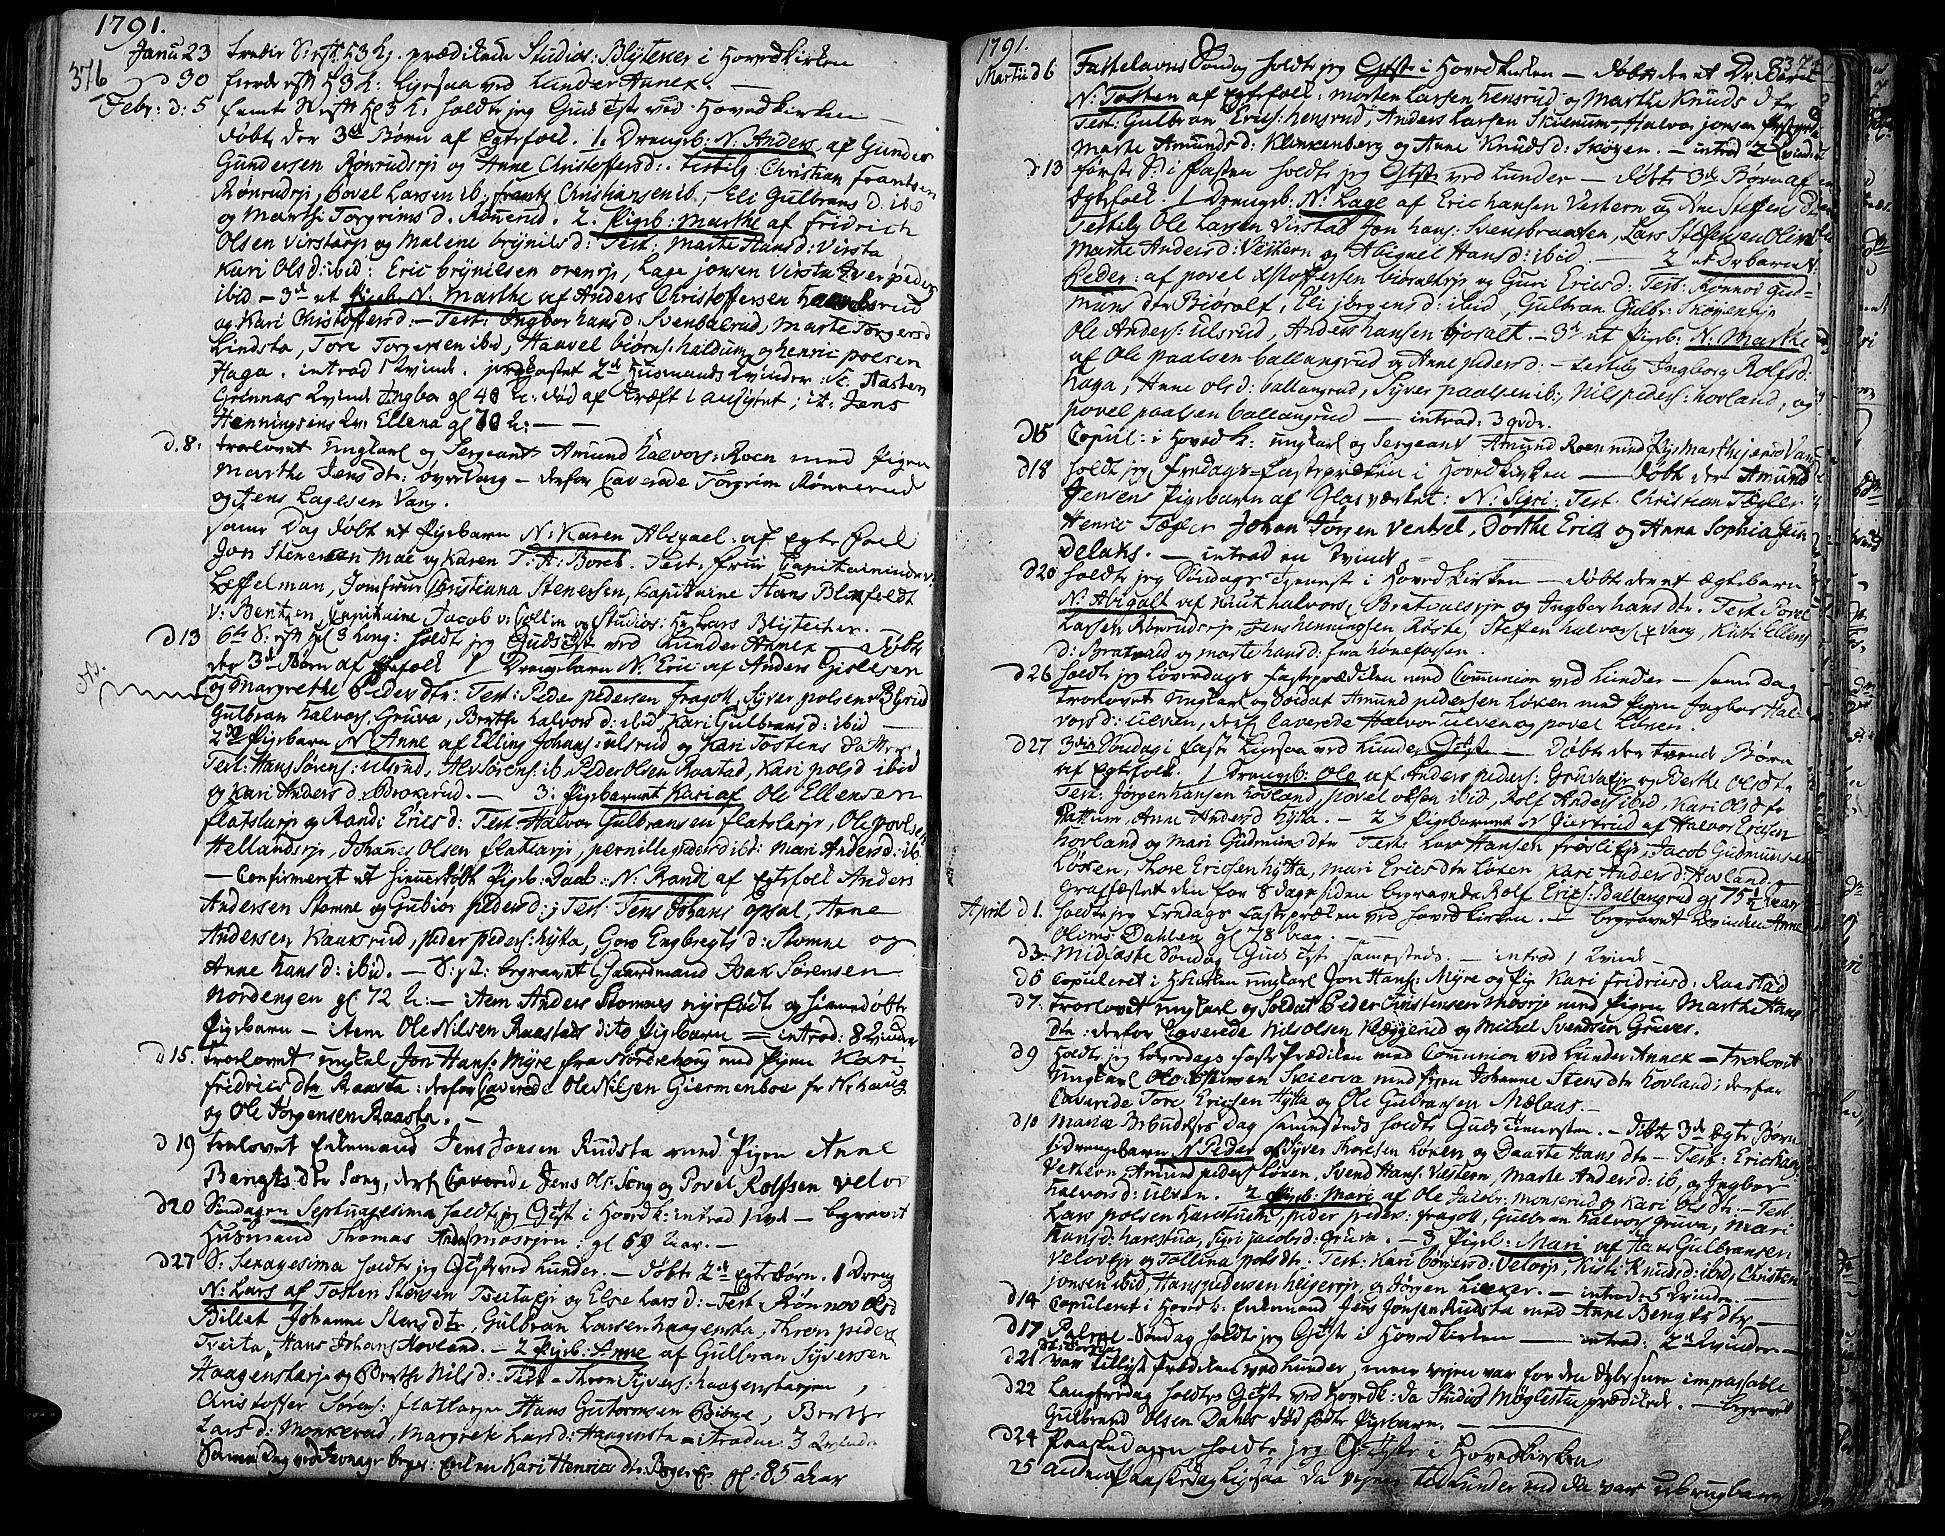 1791.
376
Janu 23 tredie S: eft H3K: prædikede Studios: Blÿtener i Hovedkirken
d 30 fierde eft H3K: Ligesaa ved Lunder Annex.
Febr: d: 5 femte S: eft H3K: holdte jeg Guds tieste ved Hovedkirken
døbt der 3de Børn af Egtefolk. 1. Drengb: N: Anders af Gunder
Gundersen Rønrudejr og Anne Christoffersd: Testib: Christian Frantsen
Rønrudejr, Povel Larsen ib, frants Christiansen ib, Eli Gulbrans d. ibid
og Marthe Torgrims d. Rønnerud. 2. Pigeb: Marthe af Fridrich
Olsen Virstaejr og Malene Brÿnilsd: Test: Marte Hans d: Virsta
Kari Ols d: ibid: Eric Brÿnilsen orenejr, Lage Jonsen Virsta Iver peders
ibid – 3de et Pigeb: N: Marthe af Anders Christoffersen
og Kari Christoffersd: – Test: Ingbor hans d: Svenbalrud, Marte Torgersd
Lindsta, Tore Torgersen ibid, Haavel biørns: haldum og henric polsen
Haga. introd 1 Kvinde. jordfæstet 2de Husmands Kvinder: N: Hasten
Grønnas Kvinde Ingbor gl 40 Aar: død af Kræft i ansigtet; it: Jens
Henningsens Kv: Ellena gl 70 Aar: –
d. 8: trolovet Ungkarl og Sergeant Amund halvors: Roen med Pigen
Marthe Jens dtr: øvre Vang – derfor Caverede Torgrim Rønnerud
og Jens Lagesen Vang.
samme Dag døbt et Pigebarn N: Karen Abigael af Egte foel
Jon Stenersen Moe og Karen T: A: Boreb. Test: Frue Capitaininde
Løffelman, Jomfrue Christiana Stenersen, Capitaine Hans Blixfeldt
V: Bentzen, Capitaine Jacob v: Collin og Studios: Hr Lars Blÿtecher.
d 13 6te S: eft Hel 3 Kong: holdt jeg Gudstiest ved Lunder Annex – Døbt
der 3de Børn af Egtefolk 1 Drengebarn N: Eric af Anders Gislesen
og Margrethe Peders dtr: Test: Peder pedersen fragott, Siver polsen Bÿrud
Gulbran halvors: Gruva, Berthe halvors d: ibid Kari Gulbrans d: ibid –
2de Pigebarn N: Anne af Elling Johans: ulsrud og Kari Tostens datter
Test: Hans Sørens: ulsrud, Alv Sørens: ib. Peder Olsen Raastad, Kari pols d ibid
og Kari Anders d: Brokerud. – 3: Pigebarnet Kari af Ole Ellensen
flatsla ejr og Randi Erics d: Test: Halvor Gulbransen flatslaejr, Ole povlsen
Hellandsejr, Johanes Olsen flatlaejr, pernille peders d ibid: Mari Anders d: ib
– Confirmeret et hiemmedøbt Pigeb: Daab: N: Randi af Egtefolk Anders
Andersen Stomne og Gubior peders d: j Test: Jens Johans: Opsal, Anne
Andersen Kaaksrud, peder peders: hÿta, Goro Engbregts d: Stomne og
Anne hans d: ibid. – begravet Gaardmand Isak Sørensen
Nordengen gl 72 Aar: – Item Anders Stomnes nÿefødte og hiemedøbte
Pigebarn – item Ole Nilsen Raastads dito Pigebarn = introd: 8 Kvinder
d 15. trolovet ungkal Jon Hans: Mÿre fra Nordrehoug med Pigen Kari
Fridrics dtr Raasta: derfor Caverede Ole Nilsen Giermenboe fr N:houg
og Ole Jørgensen Raasta. –
d 19 trolovet Enkemand Jens Jonsen Rudsta med Pigen Anne
Bengts dtr Song, derfor Caverede Jens Ols: Song og Povel Rolfsen velo
d 20 Søndagen Septuagesima holdt jeg Gtiest i Hovedk: introd 1 Kvd – begravet
Husmand Thomas Moseejen gl 59 Aar. –
d 27 S: Sexagesima holdt jeg Gtiest ved Lunder. – døbt 2de Egte børn. 1 Dreng
N: Lars af Tosten Stensen Tveitaejr og Else Lars d: – Test Rønnov Ols d
Billet Johanne Stens dtr, Gulbran Larsen haagensta, Thron peders
Tveita, Hans Johans: Hovland. – 2 Pigeb: Anne af Gulbran Sÿversen
Haagenstaejr og Berthe Nils d: – Test – Thron Sÿvers: haagenstaejen,
Christoffer Sørens: flatlaejer Hans Gutormsen Bibye, Berthe
Lars d: Monkerud, Margrete Lars d: Haagensta – introduc 3 Kvinder
Samme Dag ved Jevnager begr: Enken Kari Henrics dtr gl: 85 aar
1791.
Martii d 6 Fastelavns Søndag holdt jeg Gtiest i Hovedkirken – døbt der et Drebarn
N: Tosten af Egtefolk: Morten Larsen Hensrud og Marthe Knuds dtr
Test: Gulbran Erics: hensrud, Anders Larsen Skulnum, Halvor Jonsen
Marte Amunds d: Klinkenberg og Anne Knuds d: Skogen. – introd 2 Kvinder
d 13 første S: i Fasten holdt jeg Gtiest ved Lunder – døbt 3de Børn af
Egtefolk. 1 Drengeb: N: Lage af Eric hansen Vestern og Stefens dtr
Testib Ole Larsen Virstad Jon hans: Svensbraaten, Lars Stefensen
Marte Anders d: Vestern og Abigael Hans d: ibid. – 2 et Drbarn N:
Peder: af povel Kstoffersen biøralt ejr og Guri Erics d: Test: Rønnov Gud-
muns dtr Biøralt, Eli jørgens d: ibid, Gulbran Gulbr: Skoyen ejr
Ole Anders: ulsrud, Anders hansen bjøralt – 3de et Pigb: N: Marthe
af Ole paalsen ballangrud og Anne peders d: – testib Ingborg Rolfs d:
haga, Anne ols d: ballangrud, Syver paalsen ib:, Nils peders: hovland, og
povel paalsen ballangrud – introd: 3 qvdr.
d 15 Copul: i Hoved K: ungkarl og Sergeant Amund Roen med Pig Marthe Jensd Vang
d 18 holdt jeg fredags fasteprædiken i Hovedkirken – døbt der Amund
Jensens Pigebarn af Glasværket: N: Sigri: Test: Christian Tøgler
Henric Tøgler Johan Jørgen Ventsel, Dorthe Erics og Anna Sophia Gun
delaks. – introd en Kvinde
d 20 holdt jeg Søndags tieneste i Hovedkirken – døbt der et ægtebarn
N: Abigalt af Knut halvors: Bratvalsejr og Ingbor hans dtr. Test: Povel
Larsen Rønrudejr, Jens henningsen Røste, Steffen halvors: Vang, Kirsti Ellens
d: Bratvald og marte hans d: fra hønefossen.
d 26 holdt jeg Løverdags fasteprædiken med Communion ved Lunder – samme Dag
trolovet Ungkarl og Soldat Amund pedersen Løken med Pigen Ingbor Hal-
vors d: ulven, derfor Caverede Halvor ulven og povel Løken.
d 27 3die Søndag i faste Ligesaa ved Lunder Gtiest – Døbt der tvende Børn
af Egtefolk. 1 Drengeb: Ole af Anders peders: Gruvaejr og Berthe Ols dtr
Test: Jørgen hansen hovland, povel olsen ibid, Rolf Anders: ibid, Kari Ols dtr
Pattum, Anne Anders d hÿta. – 2 Pigebarnet N Giertrud af Halvor Ericsen
hovland og Mari Gudmuns dtr Test: Lars Hansen froslie ejr, Jacob Gudmunsen
Løken, Thore Ericsen hÿtta, Mari Erics dtr Løken, Kari Anders d: Hovland –
Gravfæstet den for 8 dage siden begravede Rolf Erics: Ballangrud gl 75½ aar
April d 1. holdt jeg fredags fasteprædiken ved hovedkirken. – begravet Kvinden Anne
Olims Dahlen gl 78 aar. –
d 3 Midfaste Søndag Guds tieste sammesteds. – introd 1 Kvinde –
d 5 Copuleret i H:kirken ungkarl Jon Hans: Mÿre og Pig: Kari Fridrics d: Raastad
d 7. trolovet ungkarl og Soldat Peder Cristensen Moeejr med Pigen Marthe Hans
dtr: derfor Caverede Nils Olsen Kleggerud og Michel Svendsen Gruves.
d 9 holdt jeg Løverdags faste Prædiken med Communion ved Lunder Annex – Trolovet
Ungkarl Skierva med Pigen Johanne Stens dtr hovland; derfor
Caverede Tore Ericsen Hÿtta og Ole Gulbransen Mælaas. –
d 10 Mariæ Bebudelses Dag sammesteds holdt Guds tienesten. – døbt 3de Egte Børn
1. Drengebarn N Peder af Sÿver Thoresen Løken og Daarte Hans dtr – Test: Eric hans:
Vestern Amund peders: Løken, Svend Hans: Vestern, Marte Anders d: ib, og Ingbor
halvors d: ulven. 2 Pigeb: Mari af Ole Jacobs: Monserud og Kari Ols dtr. – Test
Lars polsen harestuen, peder peders: fragott, Gulbran halvors: Gruva, Mari
Hans d: harestua, Siri Jacobs d: Gruva. – 3 Pigeb: Mari af Hans Gulbransen
Veloejr og Tollina pols dtr: Test: Kari børgers d: Veloejr, Kisti Knuds d: ibid, Christen
Jonsen ibid, Hans pedersen heieren, og Jørgen Lieker. – introd: 5 Kvinder. –
d 14 Copuleret i Hovedk: Enkemand Jens Jonsen Rudsta med Anne Bengts dtr –
d 17 Palme-Søndag holdt jeg Gtiest i Hovedkirken – introd: 2de Kvinder –
d 21 var tillÿst Prædiken ved Lunder, men vejen var for den dÿbe snee impassable
d 22 Langfredag holdtes Gtiest ved Hovedk: da Studios Møglestue prædikede. – begravet
Gulbrand Olsen Dahls død fødte Pigebarn. –
d 24 Paaskedagen holdt jeg Gtieste i Hovedkirken
25 Anden Paaskedag Ligesaa da vejen til Lunder end da var ubrugbar